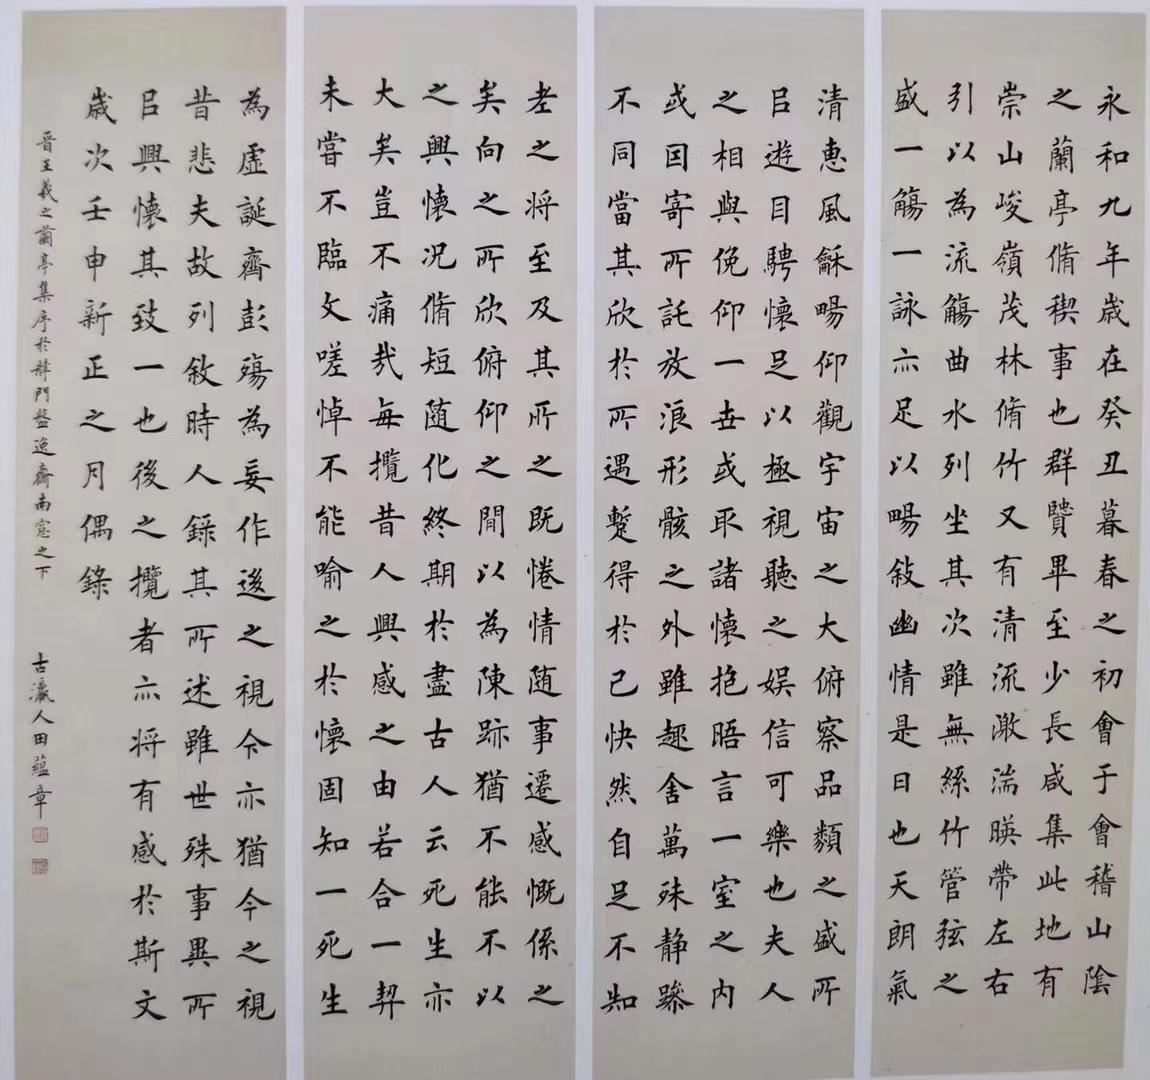 永和九年歲在癸丑暮春之初會于會稽山陰
之蘭亭脩稧事也群賢畢至少長咸集此地有
崇山峻嶺茂林脩竹又有清流激湍暎帶左右
引以為流觴曲水列坐其次雖無絲竹管弦之
盛一觴一詠亦足以暢敍幽情是日也天朗氣
清惠風龢暢仰觀宇宙之大俯察品類之盛所
㠯遊目騁懷足以極視聽之娛信可樂也夫人
之相與俛仰一世或取諸懷抱晤言一室之內
或因寄所託放浪形骸之外雖趣舍萬殊静躁
不同當其欣於所遇蹔得於己快然自足不知
老之將至及其所之既惓情随事遷感慨係之
矣向之所欣俯仰之間以為陳跡猶不能不以
之興懷况脩短随化終期於盡古人云死生亦
大矣豈不痛哉每攬昔人興感之由若合一契
未嘗不臨文嗟悼不能喻之於懷固知一死生
為虛誕齊彭殤為妄作後之視今亦猶今之視
昔悲夫故列敘時人錄其所述雖世殊事異所
㠯興懷其致一也後之攬者亦將有感於斯文
歲次壬申新正之月偶錄
晋王羲之蘭亭集序於門盤逸齋南窓之下 古瀛人田蘊章